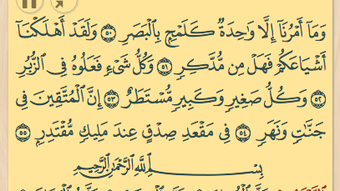 وَمَا أَمْرُنَا إِلَّا وَاحِدَةٌ كَلَمْحٍ بِالْبَصَرِ ۝٥٠ وَلَقَدْ أَهْلَكْنَا
أَشْيَاعَكُمْ فَهَلْ مِن مُّدَّكِرٍ ۝٥١ وَكُلُّ شَيْءٍ فَعَلُوهُ فِي الزُّبُرِ
۝٥٢ وَكُلُّ صَغِيرٍ وَكَبِيرٍ مُّسْتَطَرٌ ۝٥٣ إِنَّ الْمُتَّقِينَ فِي
جَنَّاتٍ وَنَهَرٍ ۝٥٤ فِي مَقْعَدِ صِدْقٍ عِندَ مَلِيكٍ مُّقْتَدِرٍ ۝٥٥
بِسْمِ اللَّهِ الرَّحْمَٰنِ الرَّحِيمِ